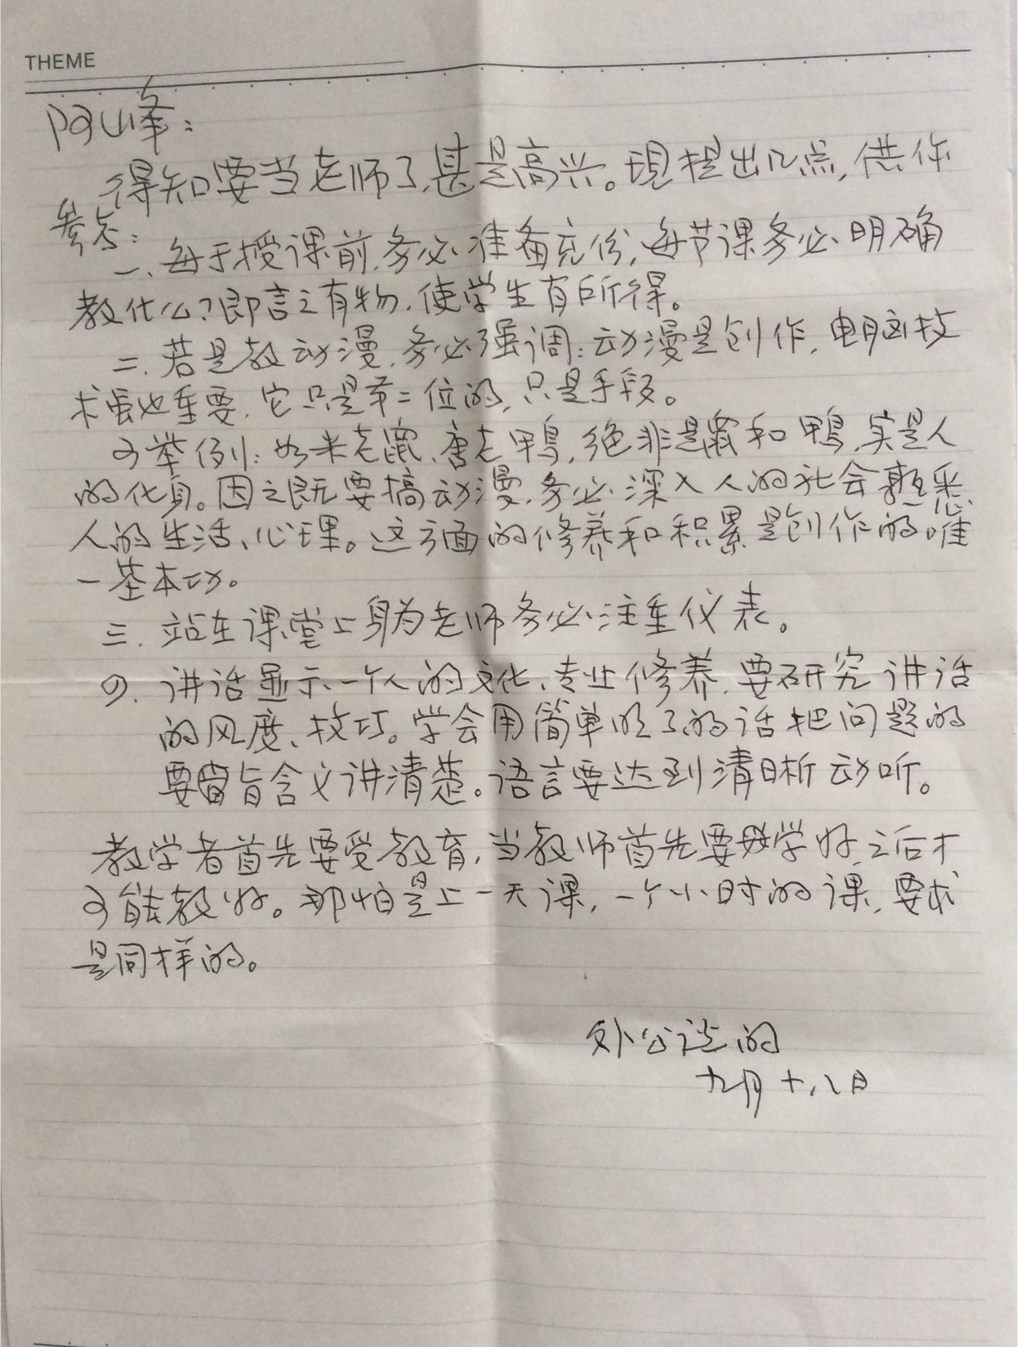 THEME
阿峰：
得知要当老师了，甚是高兴。现提出几点，供作
参考：
一、每于授课前，务必准备充份，每节课务必明确
教什么？即言之有物，使学生有所得。
二、若是教动漫，务必强调：动漫是创作，电脑技
术虽也重要，它只是第二位的，只是手段。
可举例：如米老鼠、唐老鸭，绝非是鼠和鸭，实是人
的化身。因之既要搞动漫，务必深入人的社会熟悉
人的生活、心理。这方面的修养和积累是创作的唯
一基本功。
三、站在课堂上身为老师务必注重仪表。
四、讲话显示一个人的文化、专业修养，要研究讲话
的风度、技巧。学会用简单明了的话把问题的
要旨含义讲清楚。语言要达到清晰动听。
教学者首先要受教育，当教师首先要学好，之后才
可能教好。那怕是上一天课，一个小时的课，要求
是同样的。
外公谈的
九月十八日